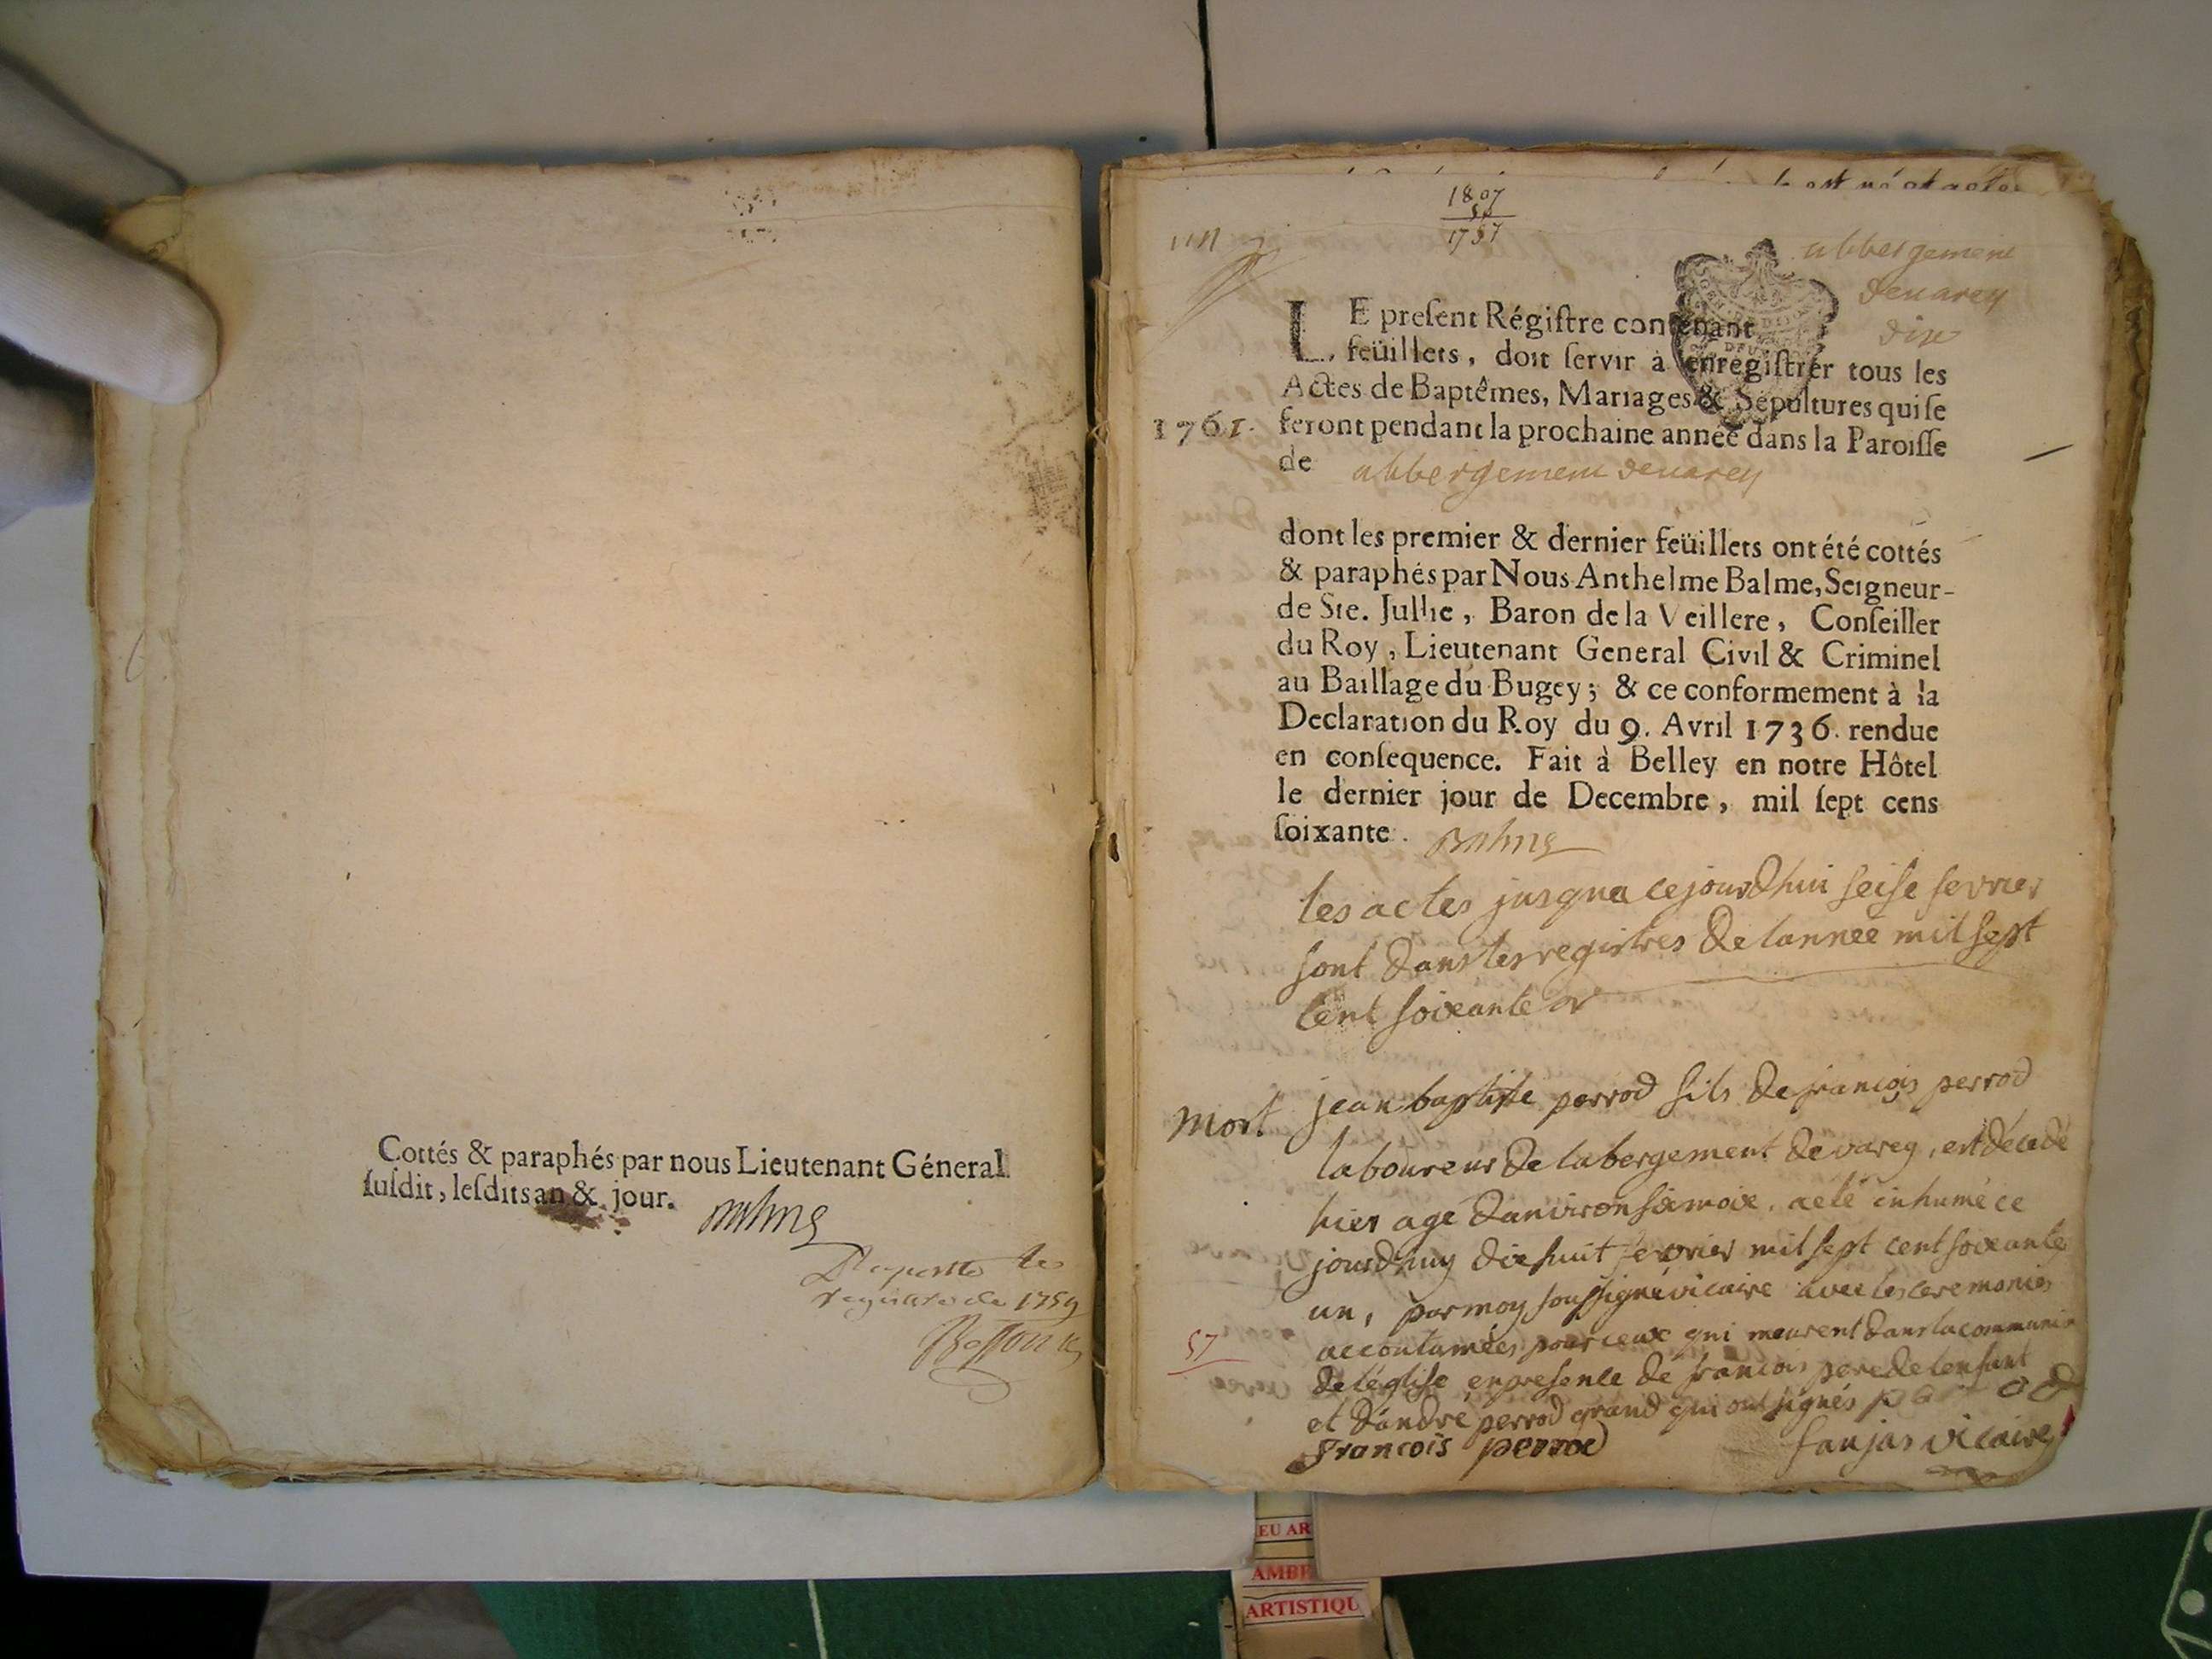 Cottés & paraphés par nous Lieutenant Géneral
ſuſdit, leſdits an & jour.
Balme
de 1759
1807
50
1757
abbergement
devarey
dix
LE preſent Régiſtre contenant
feüillets, doit ſervir à enregiſtrer tous les
Actes de Baptêmes, Mariages & Sépultures qui ſe
1761. feront pendant la prochaine année dans la Paroiſſe
de abbergement devarey
dont les premier & dernier feüillets ont été cottés
& paraphés par Nous Anthelme Balme, Seigneur-
de Ste. Jullie, Baron de la Veillere, Conſeiller
du Roy, Lieutenant General Civil & Criminel
au Baillage du Bugey; & ce conformement à la
Declaration du Roy du 9. Avril 1736. rendue
en conſequence. Fait à Belley en notre Hôtel
le dernier jour de Decembre, mil ſept cens
ſoixante. Balme
les actes jusqua cejourdhui seise fevrier
sont dans les registres de lannée mil sept
cent soixante
mort
jean baptiste perrod fils de françois perrod
laboureur de labergement de varey, est décedé
hier age danviron six moix. a eté inhumé ce
jourdhuy dixhuit fevrier mil sept cent soixante
un, par moy soussigné vicaire avec les ceremonies
57
accoutumées pour ceux qui meurent dans la communion
de léglise, en presence de francois pere de lenfant
et dandré perrod grand qui ont signés
francois perrod
faujas vicaire
EU AR
AMBI
ARTISTIQU